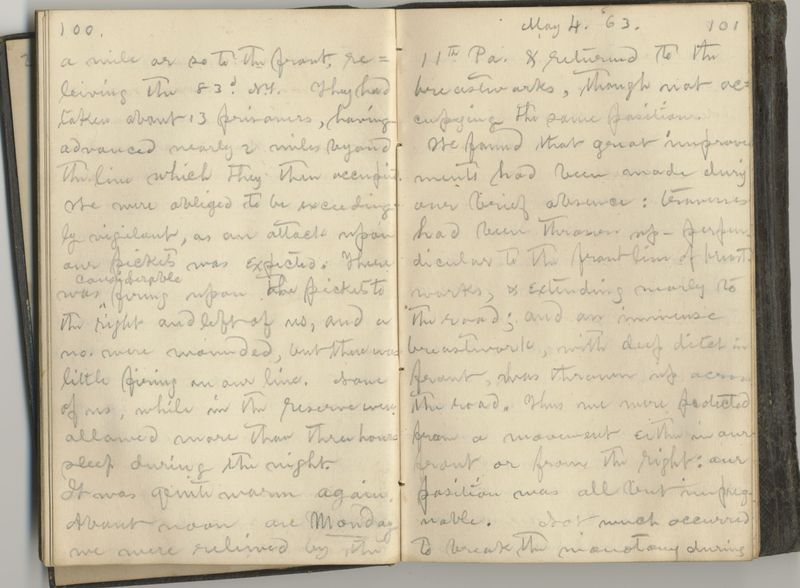 100.
a mile or so to the front, re=
leiving the 83d N.Y. They had
taken about 13 prisoners, having
advanced nearly 2 miles beyond
the line which they then occupied.
We were obliged to be exceeding-
ly vigilant, as an attack upon
our pickets was expected. There
considerable
was firing upon the pickets to
the right and left of us, and a
no. were wounded, but there was
little firing on our line. Some
of us, while in the reserve were
allowed more than three hours
sleep during the night.
It was quite warm again.
About noon on Monday
we were relieved by the
May 4. 63. 101
11th Pa. & returned to the
breastworks, though not oc=
cupying the same position.
We found that great improve
ments had been made during
our brief absence: traverses
had been thrown up- perpen
dicular to the front line of breast
works, & extending nearly to
the road; and an immense
breastwork, with deep ditch in
front, was thrown up across
the road. Thus we were protected
from a movement either in our
front or from the right: our
position was all but impreg
nable. Not much occurred
to break the monotony during